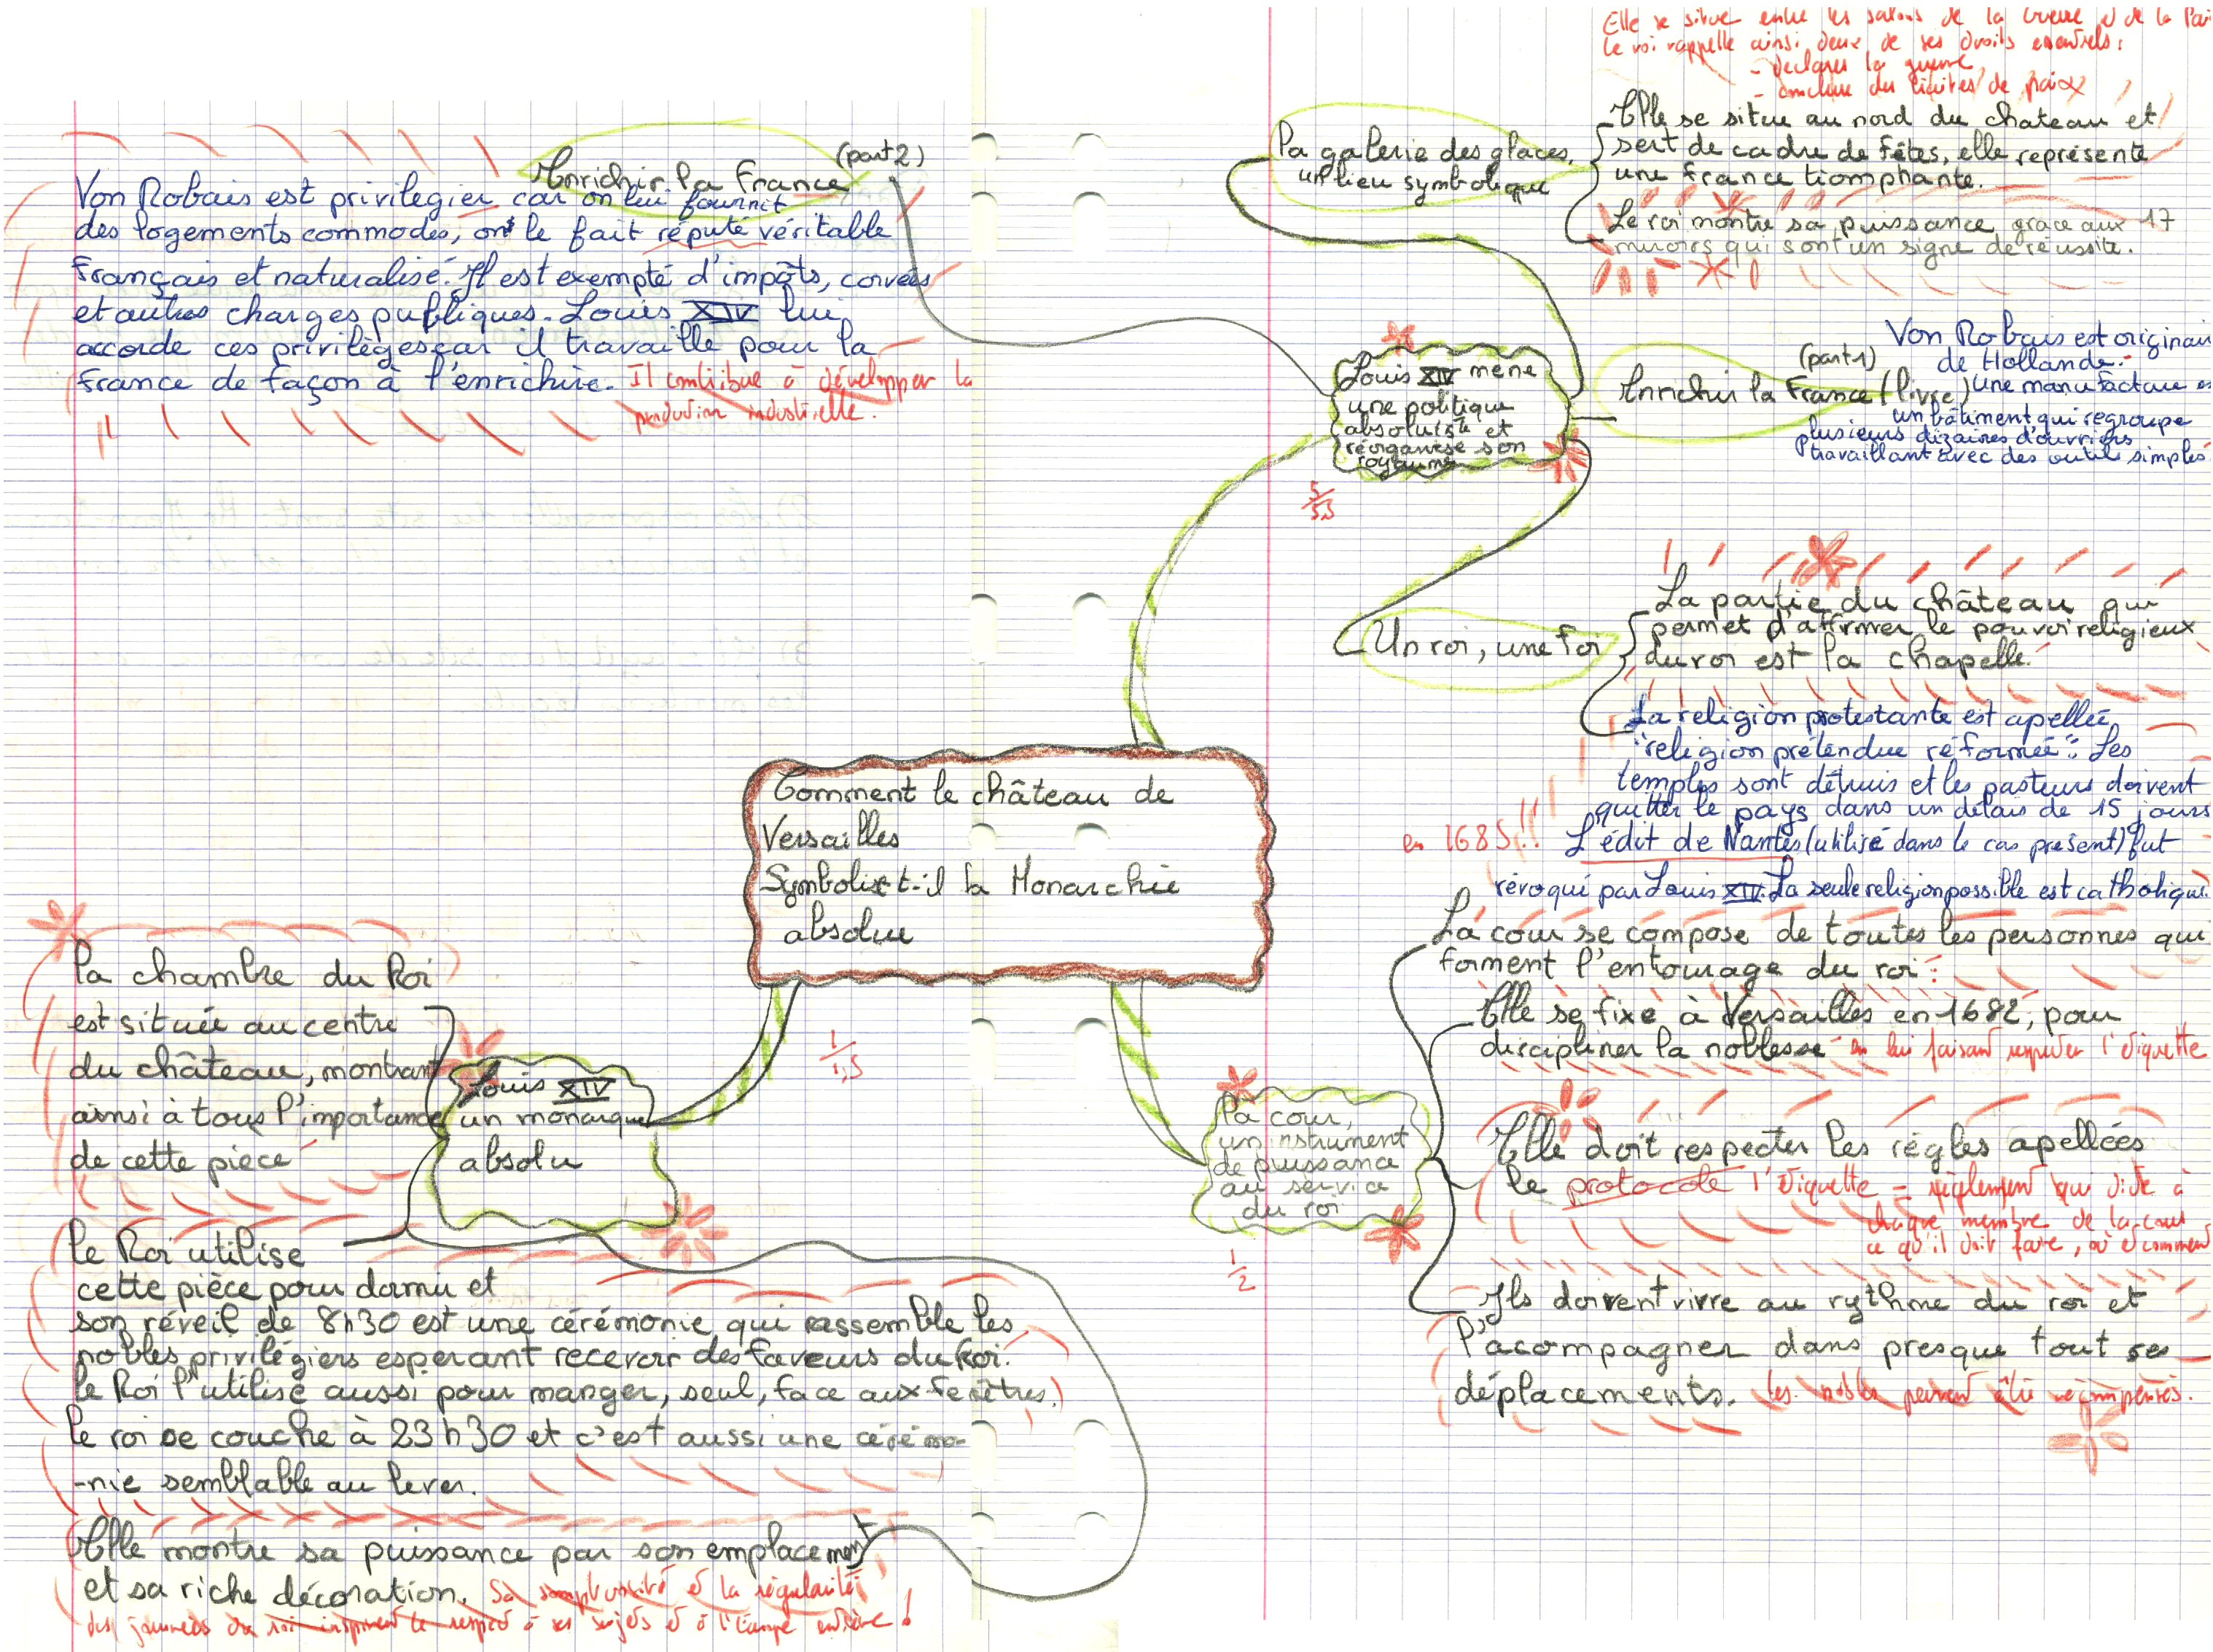 Elle se situe entre les salons de la Guerre et de la Pai
Le roi rappelle ainsi deux de ses droits essentiels :
- déclarer la guerre
- conclure des traités de paix
La galerie des glaces,
un lieu symbolique
Elle se situe au nord du chateau et
sert de cadre de fêtes, elle représente
une france tiomphante.
Le roi montre sa puissance grace aux 17
miroirs qui sont un signe de réussite.
Enrichir la france (part 2)
Von Robais est privilegier car on lui fournit
des logements commodes, ont le fait réputé véritable
français et naturalisé. Il est exempté d'impôts, corvées
et autres charges publiques. Louis XIV lui
accorde ces privilèges car il travaille pour la
france de façon à l'enrichire. Il contribue à développer la
production industrielle.
Louis XIV mène
une politique
absoluiste et
réorganise son
royaume
5/5,5
(part 1)
Enrichir la france (livre)
Von Robais est originair
de Hollande.
Une manufacture es
un bâtiment qui regroupe
plusieurs dizaines d'ouvriers
travaillant avec des outils simples
Un roi, une foi
La partie du château qui
permet d'affirmer le pouvoir religieux
du roi est la chapelle.
La religion protestante est apellée
"religion prétendue réformée". Les
temples sont détruis et les pasteurs doivent
quitter le pays dans un délais de 15 jours
en 1685 !! L'édit de Nantes (utilisé dans le cas présent) fut
révoqué par Louis XIV. La seule religion possible est catholique.
Comment le château de
Versailles
Symbolise-t-il la Monarchie
absolue
La chambre du Roi
est située au centre
du château, montrant
ainsi à tous l'importance
de cette pièce
Louis XIV
un monarque
absolu
1/1,5
Le Roi utilise
cette pièce pour dormir et
son réveil de 8h30 est une cérémonie qui rassemble les
nobles privilégiers esperant recevoir des faveurs du Roi.
Le Roi l'utilise aussi pour manger, seul, face aux fenêtres.
Le roi se couche à 23h30 et c'est aussi une cérémo-
-nie semblable au lever.
Elle montre sa puissance par son emplacement
et sa riche décoration. Sa somptuosité et la régularité
des journées du roi inspirent le respect à ses sujets et à l'Europe entière !
La cour,
un instrument
de puissance
au service
du roi
1/2
La cour se compose de toutes les personnes qui
forment l'entourage du roi.
Elle se fixe à Versailles en 1682, pour
discipliner la noblesse en lui faisant respecter l'étiquette
Elle doit respecter les régles apellées
le protocole l'étiquette = règlement qui dicte à
chaque membre de la cour
ce qu'il doit faire, où et comment
Ils doivent vivre au rythme du roi et
l'acompagner dans presque tout ses
déplacements. Les nobles peuvent être récompensés.